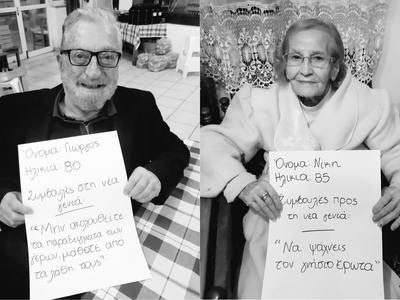 Όνομα: Γιώργος
Ηλικία: 80
Συμβουλές στη νέα
γενιά:
“Μην ακολουθείτε
τα παραδείγματα των
γέρων, μάθετε από
τα λάθη τους”
Όνομα: Νίκη
Ηλικία: 85
Συμβουλές προς
τη νέα γενιά:
“Να ψάχνεις
τον γνήσιο έρωτα”